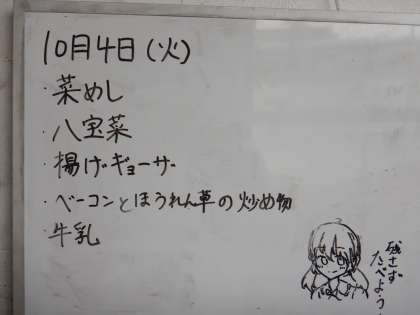 10月4日(火)
・菜めし
・八宝菜
・揚げギョーザ
・ベーコンとほうれん草の炒め物
・牛乳
残さず
たべよう